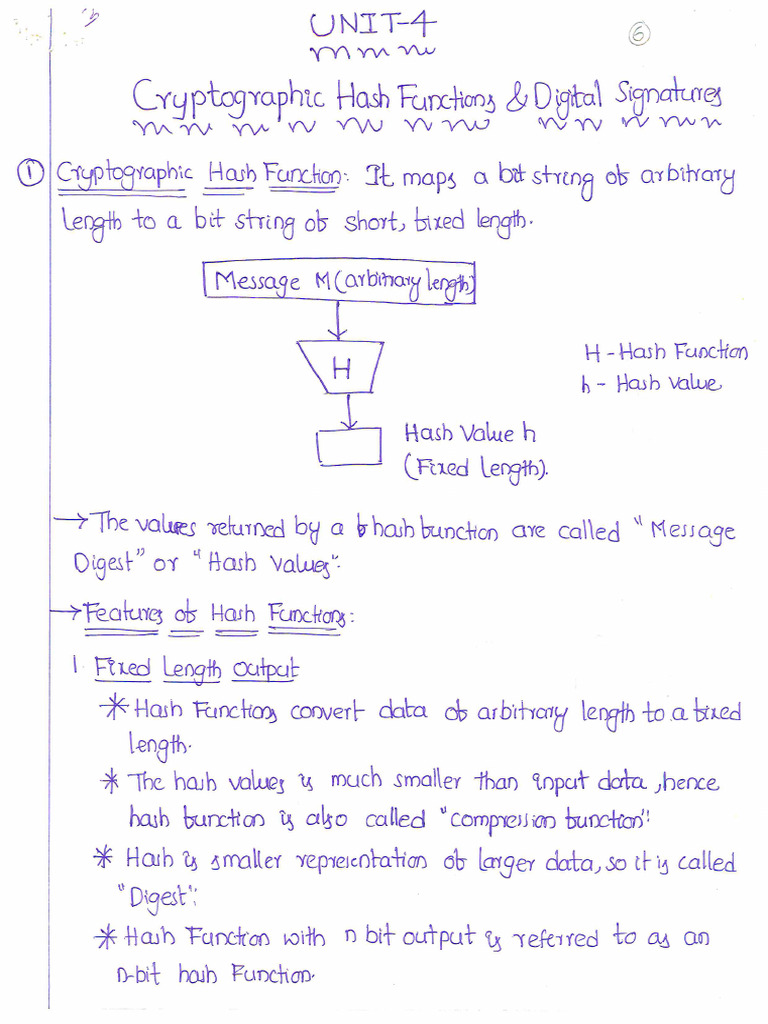 UNIT-4
6
Cryptographic Hash Functions & Digital Signatures
1 Cryptographic Hash Function: It maps a bit string of arbitrary
length to a bit string of short, fixed length.
Message M (arbitrary length)
H
H - Hash Function
h - Hash value
Hash Value h
(Fixed Length).
→ The values returned by a hash function are called "Message
Digest" or "Hash Values".
→ Features of Hash Functions:
1. Fixed Length Output
* Hash Functions convert data of arbitrary length to a fixed
length.
* The hash values is much smaller than input data, hence
hash function is also called "compression function".
* Hash is smaller representation of larger data, so it is called
"Digest".
* Hash Function with n bit output is referred to as an
n-bit hash Function.